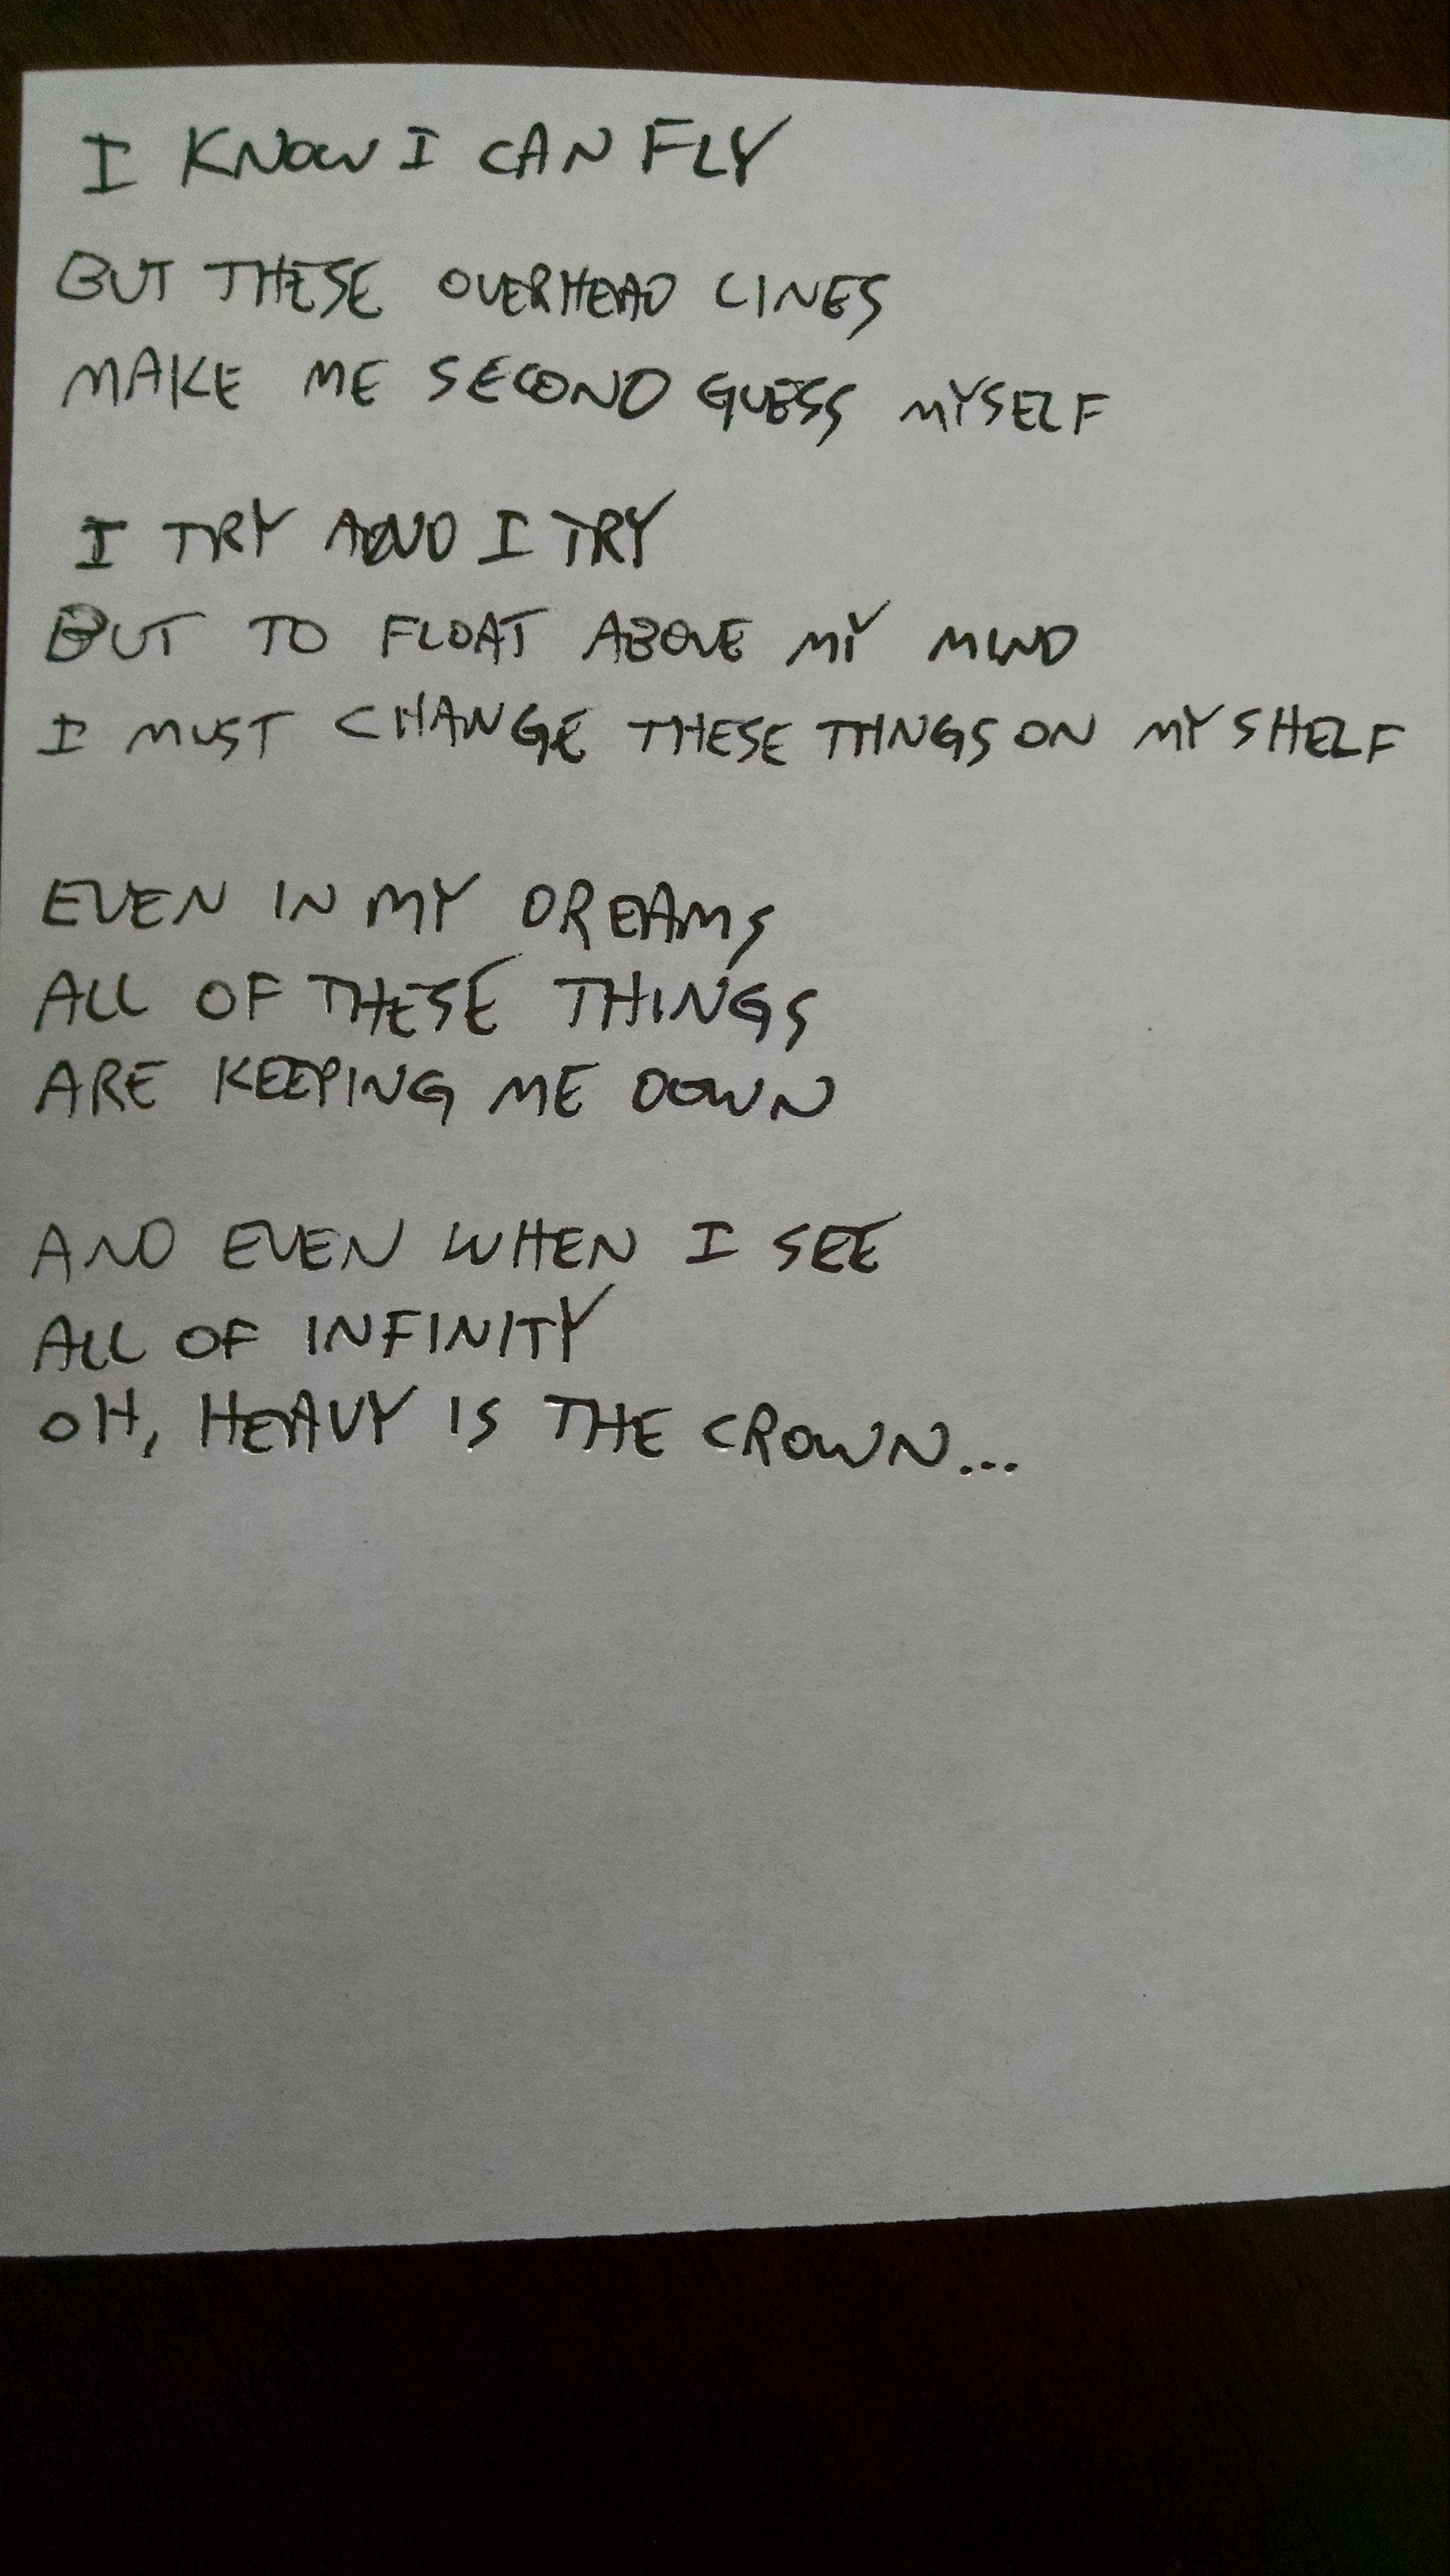 I KNOW I CAN FLY
BUT THESE OVERHEAD LINES
MAKE ME SECOND GUESS MYSELF
I TRY AND I TRY
BUT TO FLOAT ABOVE MY MIND
I MUST CHANGE THESE THINGS ON MY SHELF
EVEN IN MY DREAMS
ALL OF THESE THINGS
ARE KEEPING ME DOWN
AND EVEN WHEN I SEE
ALL OF INFINITY
OH, HEAVY IS THE CROWN...